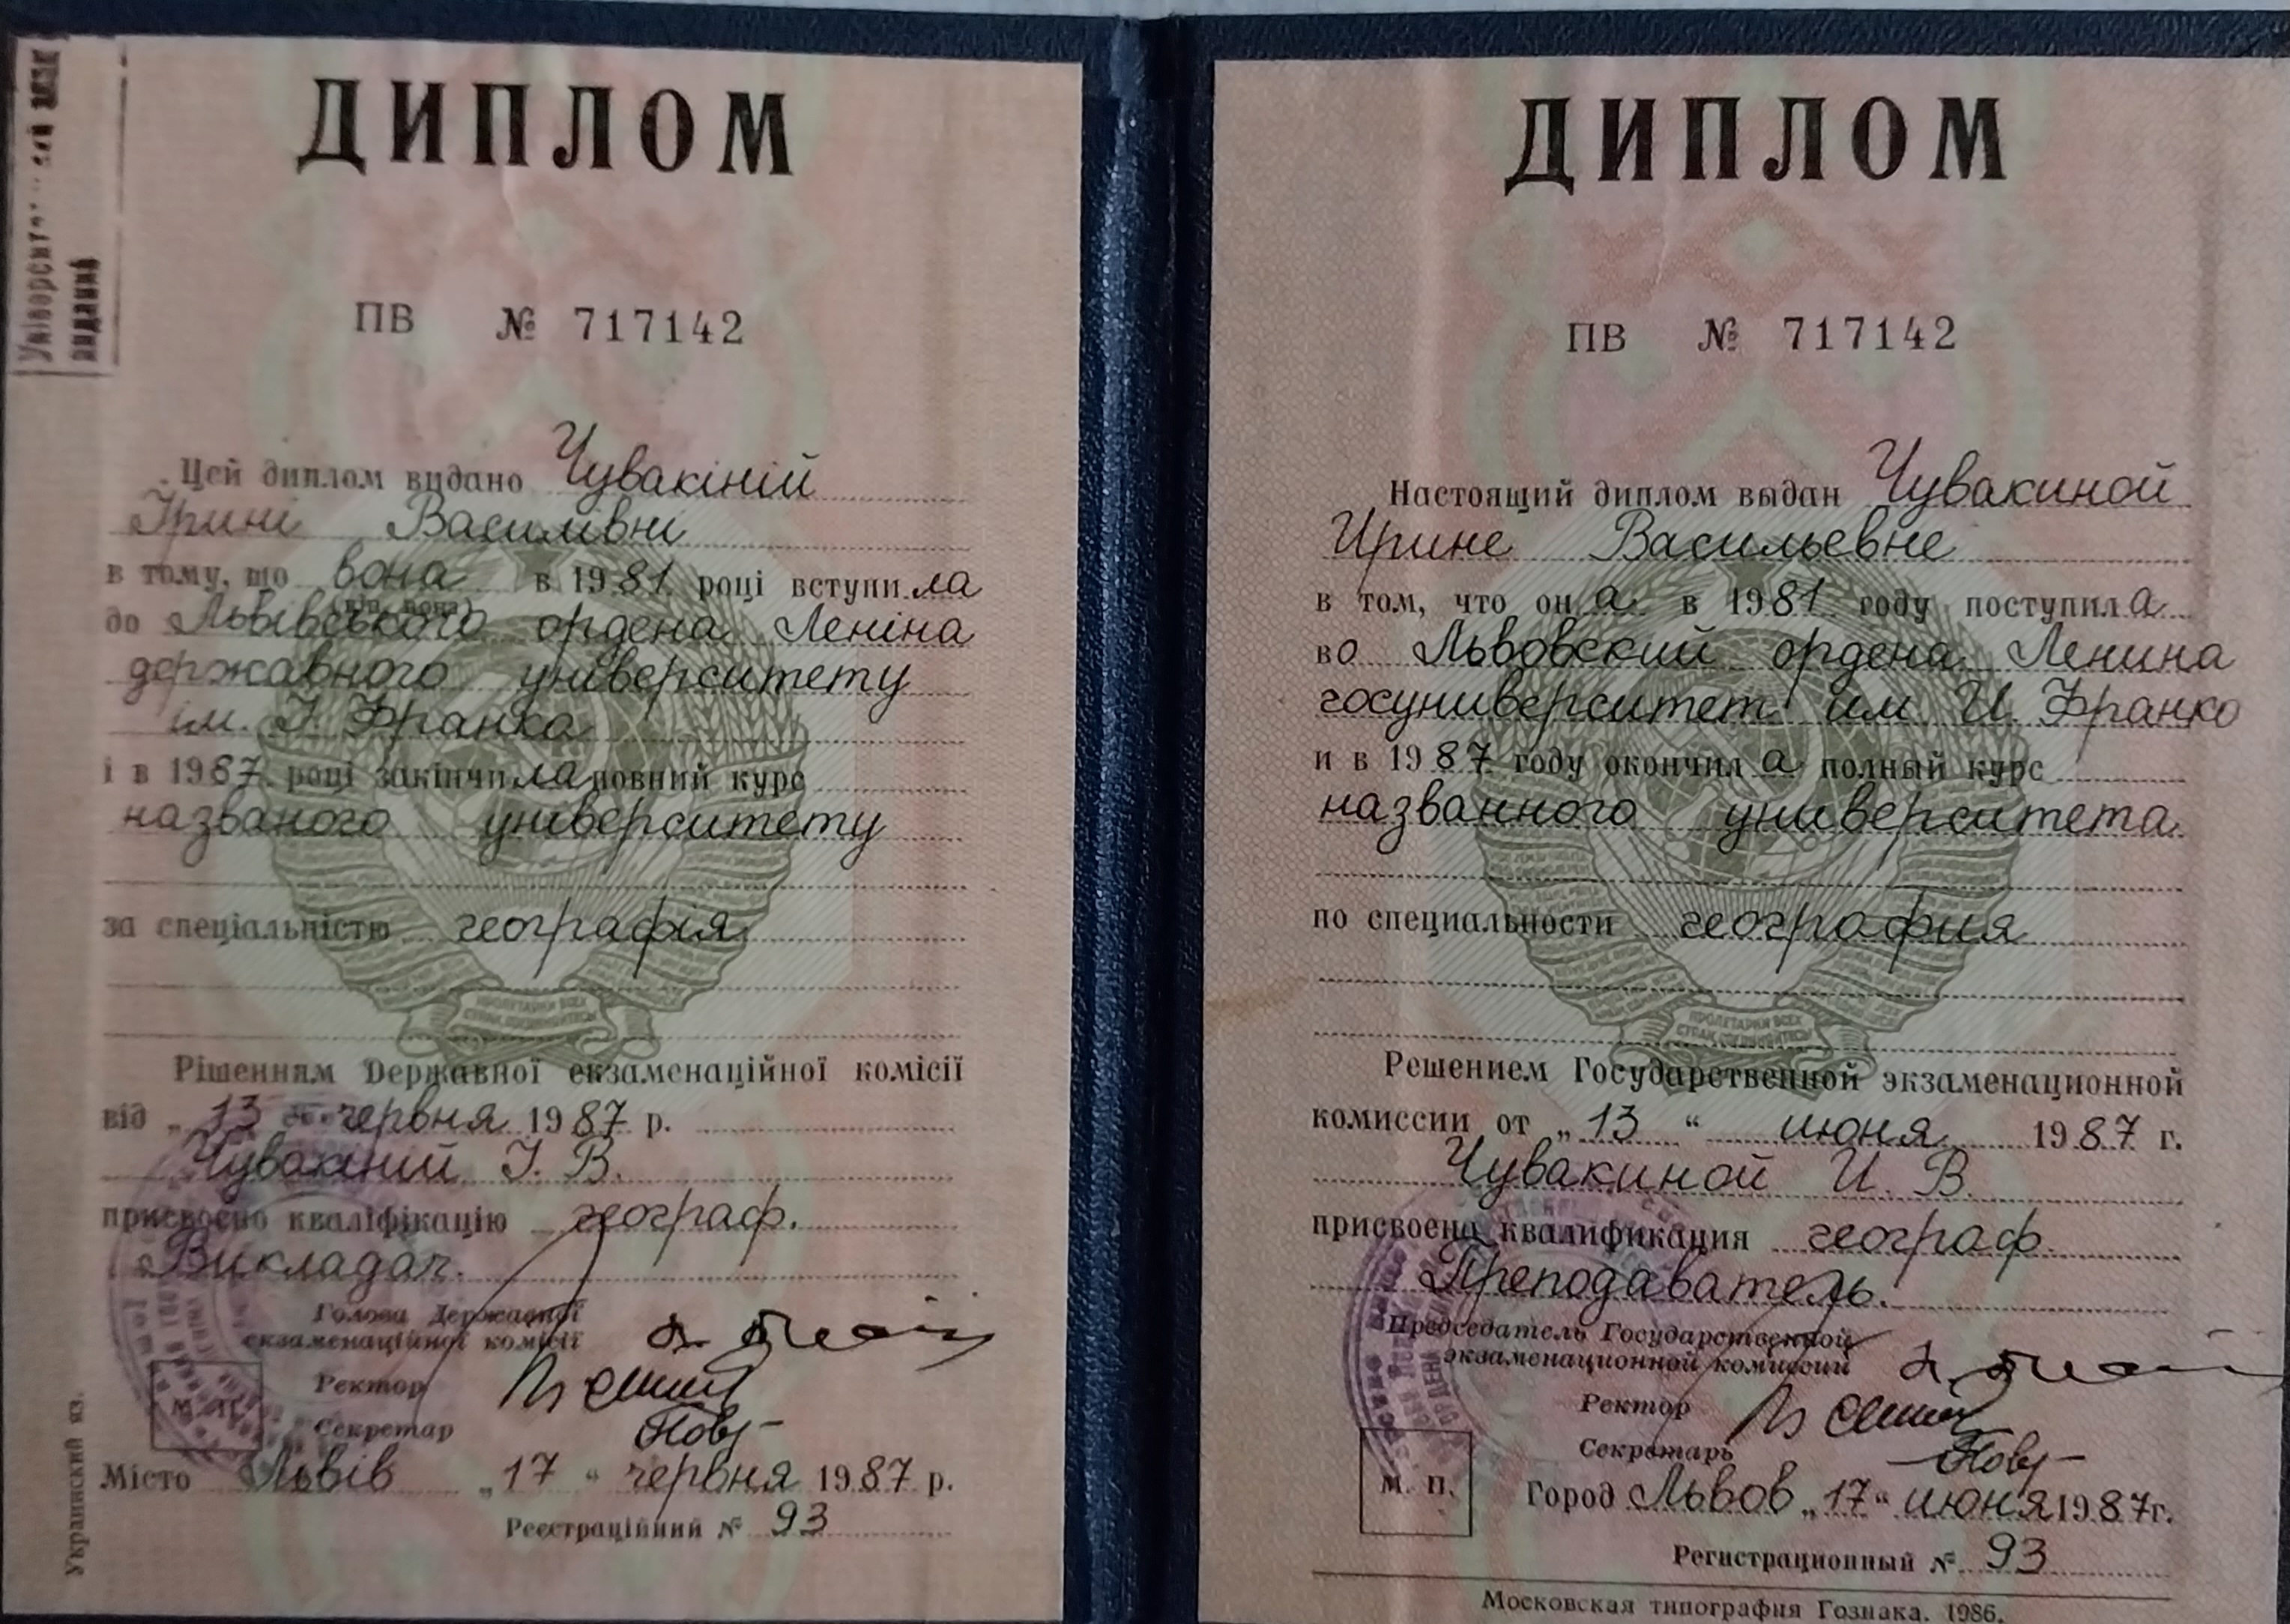 ДИПЛОМ
ПВ № 717142
Цей диплом видано Чувакіній
Ірині Василівні
в тому, що вона в 1981 році вступила
(він, вона)
до Львівського ордена Леніна
державного університету
ім. І. Франка
і в 1987 році закінчила повний курс
названого університету
за спеціальністю географія
ПРОЛЕТАРИИ ВСЕХ
СТРАН, СОЕДИНЯЙТЕСЬ!
Рішенням Державної екзаменаційної комісії
від „13 червня 1987 р.
Чувакіній І. В.
присвоєно кваліфікацію географ.
Викладач.
Голова Державної
екзаменаційної комісії
Ректор
Секретар
М. П.
Місто Львів „17“ червня 1987 р.
Реєстраційний № 93
Украинский яз.
видання
ДИПЛОМ
ПВ № 717142
Настоящий диплом выдан Чувакиной
Ирине Васильевне
в том, что она в 1981 году поступила
во Львовский ордена Ленина
госуниверситет им И. Франко
и в 1987 году окончила полный курс
названного университета
по специальности география
ПРОЛЕТАРИИ ВСЕХ
СТРАН, СОЕДИНЯЙТЕСЬ!
Решением Государственной экзаменационной
комиссии от „13“ июня 1987 г.
Чувакиной И. В.
присвоена квалификация географ.
Преподаватель.
Председатель Государственной
экзаменационной комиссии
Ректор
Секретарь
М. П.
Город Львов „17“ июня 1987г.
Регистрационный № 93
Московская типография Гознака. 1986.